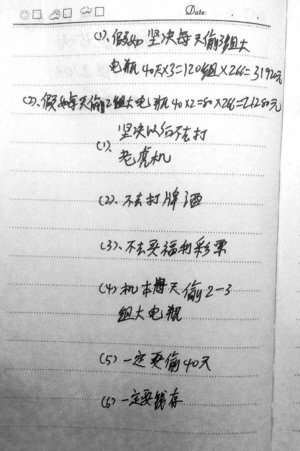 Date:
(1)、假如坚决每天偷3组大
电瓶40天×3=120组×266=31920元
(2)、假如每天偷2组大电瓶40×2=80×266=21280元
(1)、坚决以后不去打
老虎机
(2)、不去打牌酒
(3)、不去买福利彩票
(4)机本每天偷2-3
组大电瓶
(5)一定要偷40天
(6)一定要钱存